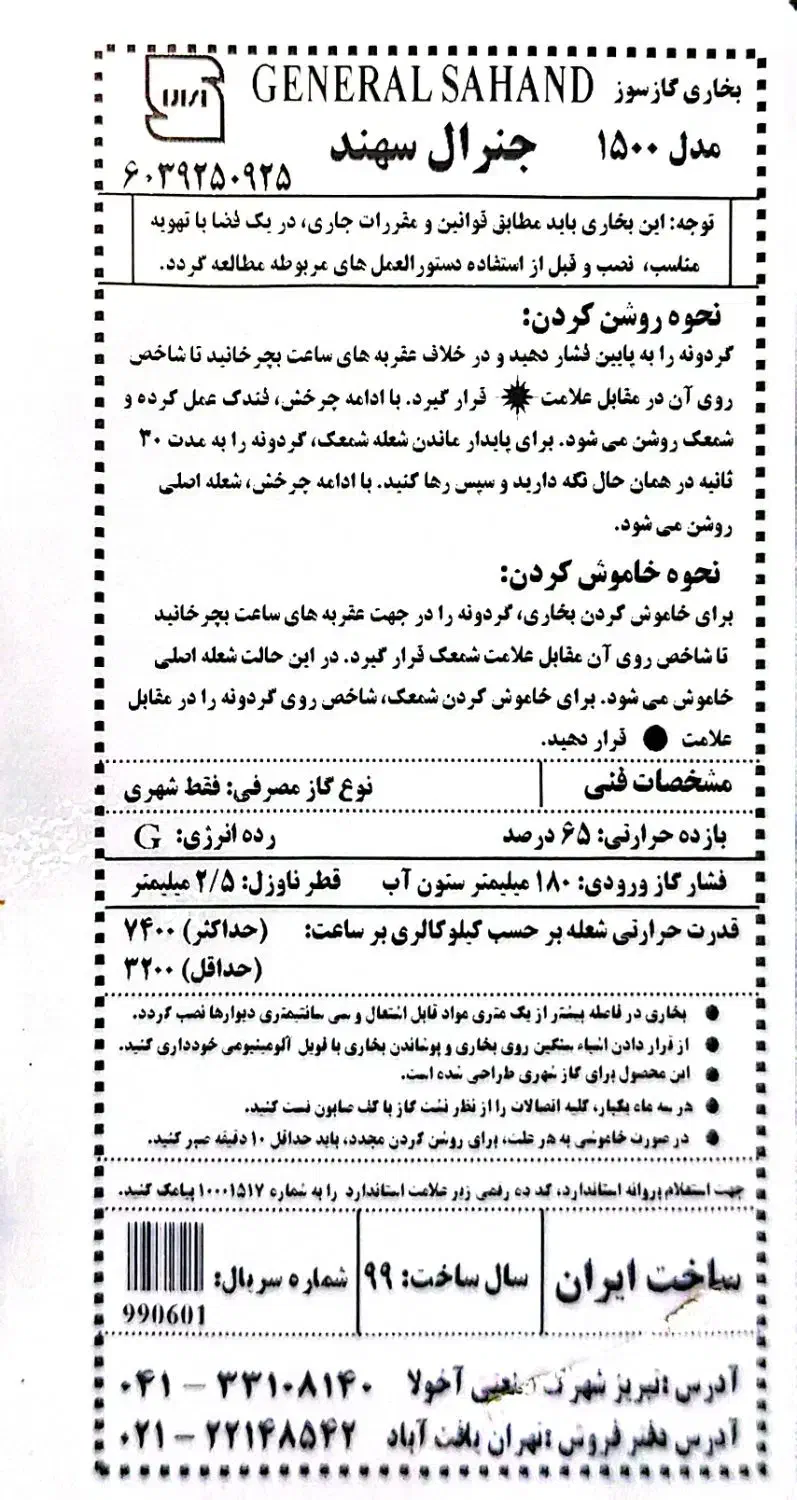 بخاری گازسوز GENERAL SAHAND
مدل ۱۵۰۰ جنرال سهند
۶۰۳۹۲۵۰۹۲۵
توجه: این بخاری باید مطابق قوانین و مقررات جاری، در یک فضا با تهویه
مناسب، نصب و قبل از استفاده دستورالعمل های مربوطه مطالعه گردد.
نحوه روشن کردن:
گردونه را به پایین فشار دهید و در خلاف عقربه های ساعت بچرخانید تا شاخص
روی آن در مقابل علامت قرار گیرد. با ادامه چرخش، فندک عمل کرده و
شمعک روشن می شود. برای پایدار ماندن شعله شمعک، گردونه را به مدت ۳۰
ثانیه در همان حال نگه دارید و سپس رها کنید. با ادامه چرخش، شعله اصلی
روشن می شود.
نحوه خاموش کردن:
برای خاموش کردن بخاری، گردونه را در جهت عقربه های ساعت بچرخانید
تا شاخص روی آن مقابل علامت شمعک قرار گیرد. در این حالت شعله اصلی
خاموش می شود. برای خاموش کردن شمعک، شاخص روی گردونه را در مقابل
علامت ● قرار دهید.
مشخصات فنی نوع گاز مصرفی: فقط شهری
بازده حرارتی: ۶۵ درصد رده انرژی: G
فشار گاز ورودی: ۱۸۰ میلیمتر ستون آب قطر ناوزل: ۲/۵ میلیمتر
قدرت حرارتی شعله بر حسب کیلوکالری بر ساعت: (حداکثر) ۷۴۰۰
(حداقل) ۳۲۰۰
● بخاری در فاصله بیشتر از یک متری مواد قابل اشتعال و سی سانتیمتری دیوارها نصب گردد.
● از قرار دادن اشیاء سنگین روی بخاری و پوشاندن بخاری با فویل آلومینیومی خودداری کنید.
● این محصول برای گاز شهری طراحی شده است.
● هر سه ماه یکبار، کلیه اتصالات را از نظر نشت گاز با کف صابون تست کنید.
● در صورت خاموشی به هر علت، برای روشن کردن مجدد، باید حداقل ۱۰ دقیقه صبر کنید.
جهت استعلام پروانه استاندارد، کد ده رقمی زیر علامت استاندارد را به شماره ۱۰۰۰۱۵۱۷ پیامک کنید.
ساخت ایران سال ساخت: ۹۹ شماره سریال:
990601
آدرس :تبریز شهرک صنعتی آخولا ۳۳۱۰۸۱۴۰ – ۰۴۱
آدرس دفتر فروش :تهران یافت آباد ۲۲۱۴۸۵۴۲ – ۰۲۱